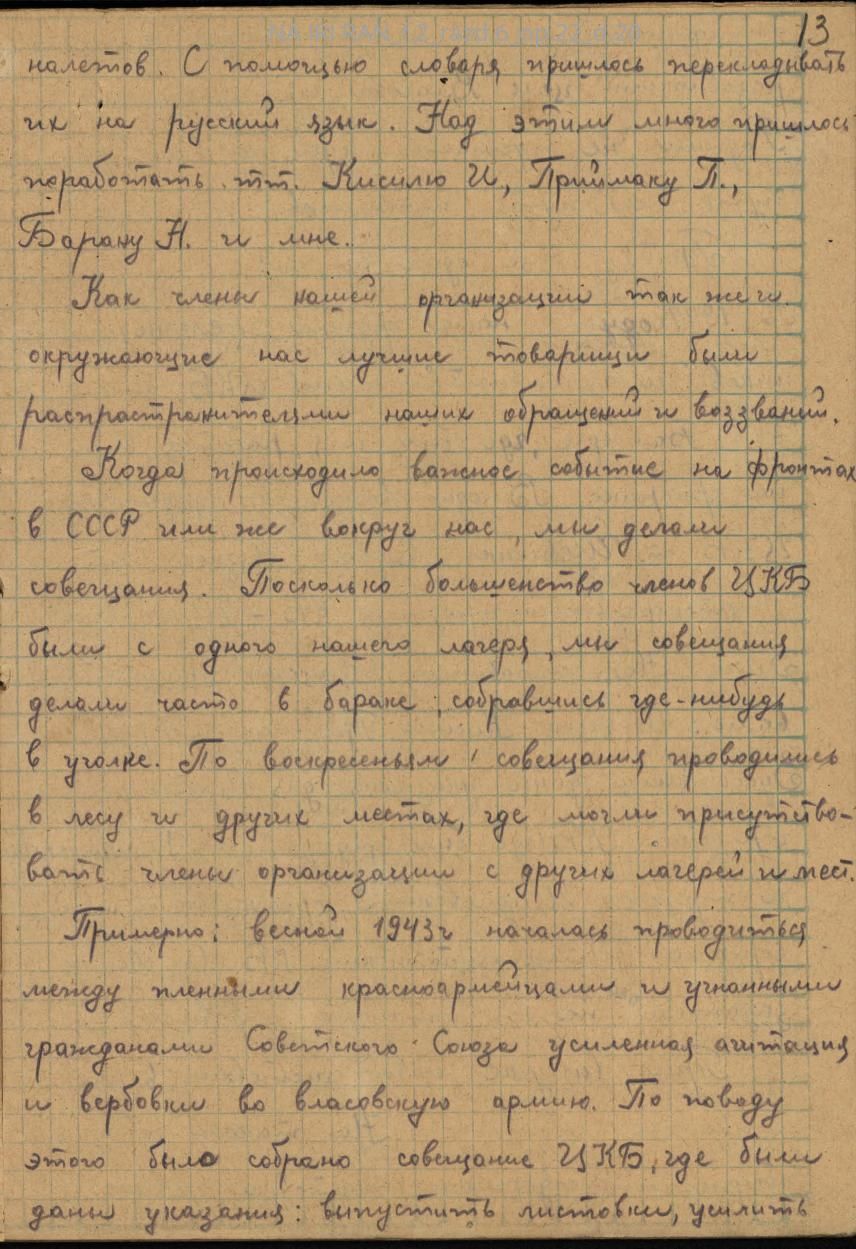 13
налетов. С помощью словаря пришлось перекладывать
их на русский язык. Над этим много пришлось
поработать тт. Кисилю И, Приймаку П.,
Барану Н. и мне.
Как члены нашей организации так же и
окружающие нас лучшие товарищи были
распрастранителями наших обращений и воззваний.
Когда происходило важное событие на фронтах
в СССР или же вокруг нас, мы делали
совещания. Посколько большенство членов ЦКБ
были с одного нашего лагеря, мы совещания
делали часто в бараке, собравшись где-нибудь
в уголке. По воскресеньям совещания проводились
в лесу и других местах, где могли присутство-
вать члены организации с других лагерей и мест.
Примерно: весной 1943г началась проводиться
между пленными красноармейцами и угнанными
гражданами Советского Союза усиленная агитация
и вербовки во власовскую армию. По поводу
этого было собрано совещание ЦКБ, где были
даны указания: выпустить листовки, усилить